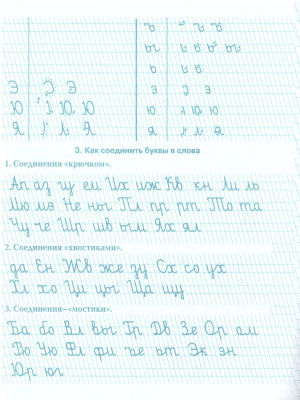 ъ ъ ъ ъ
ы ы ы ы ы
ь ь ь
Э Э Э э э э
Ю Ю Ю Ю ю ю ю ю
Я Я Я Я я я я я
3. Как соединить буквы в слова
1. Соединения «крючком».
Ап аз иу ем Их иж Кв кн Ли ль
Мю мэ Не ны Пл пр рт То та
Чу че Шр шв ым Ях ял
2. Соединения «хвостиками».
да Ен Жв же зу Сх со ух
Хл хо Ци цы Ща щу
3. Соединения–«мостики».
Ба бо Вл вы Гр Дв Зе Ор ом
Во Ую Фл фи ъе ьт Эк эн
Юр юг